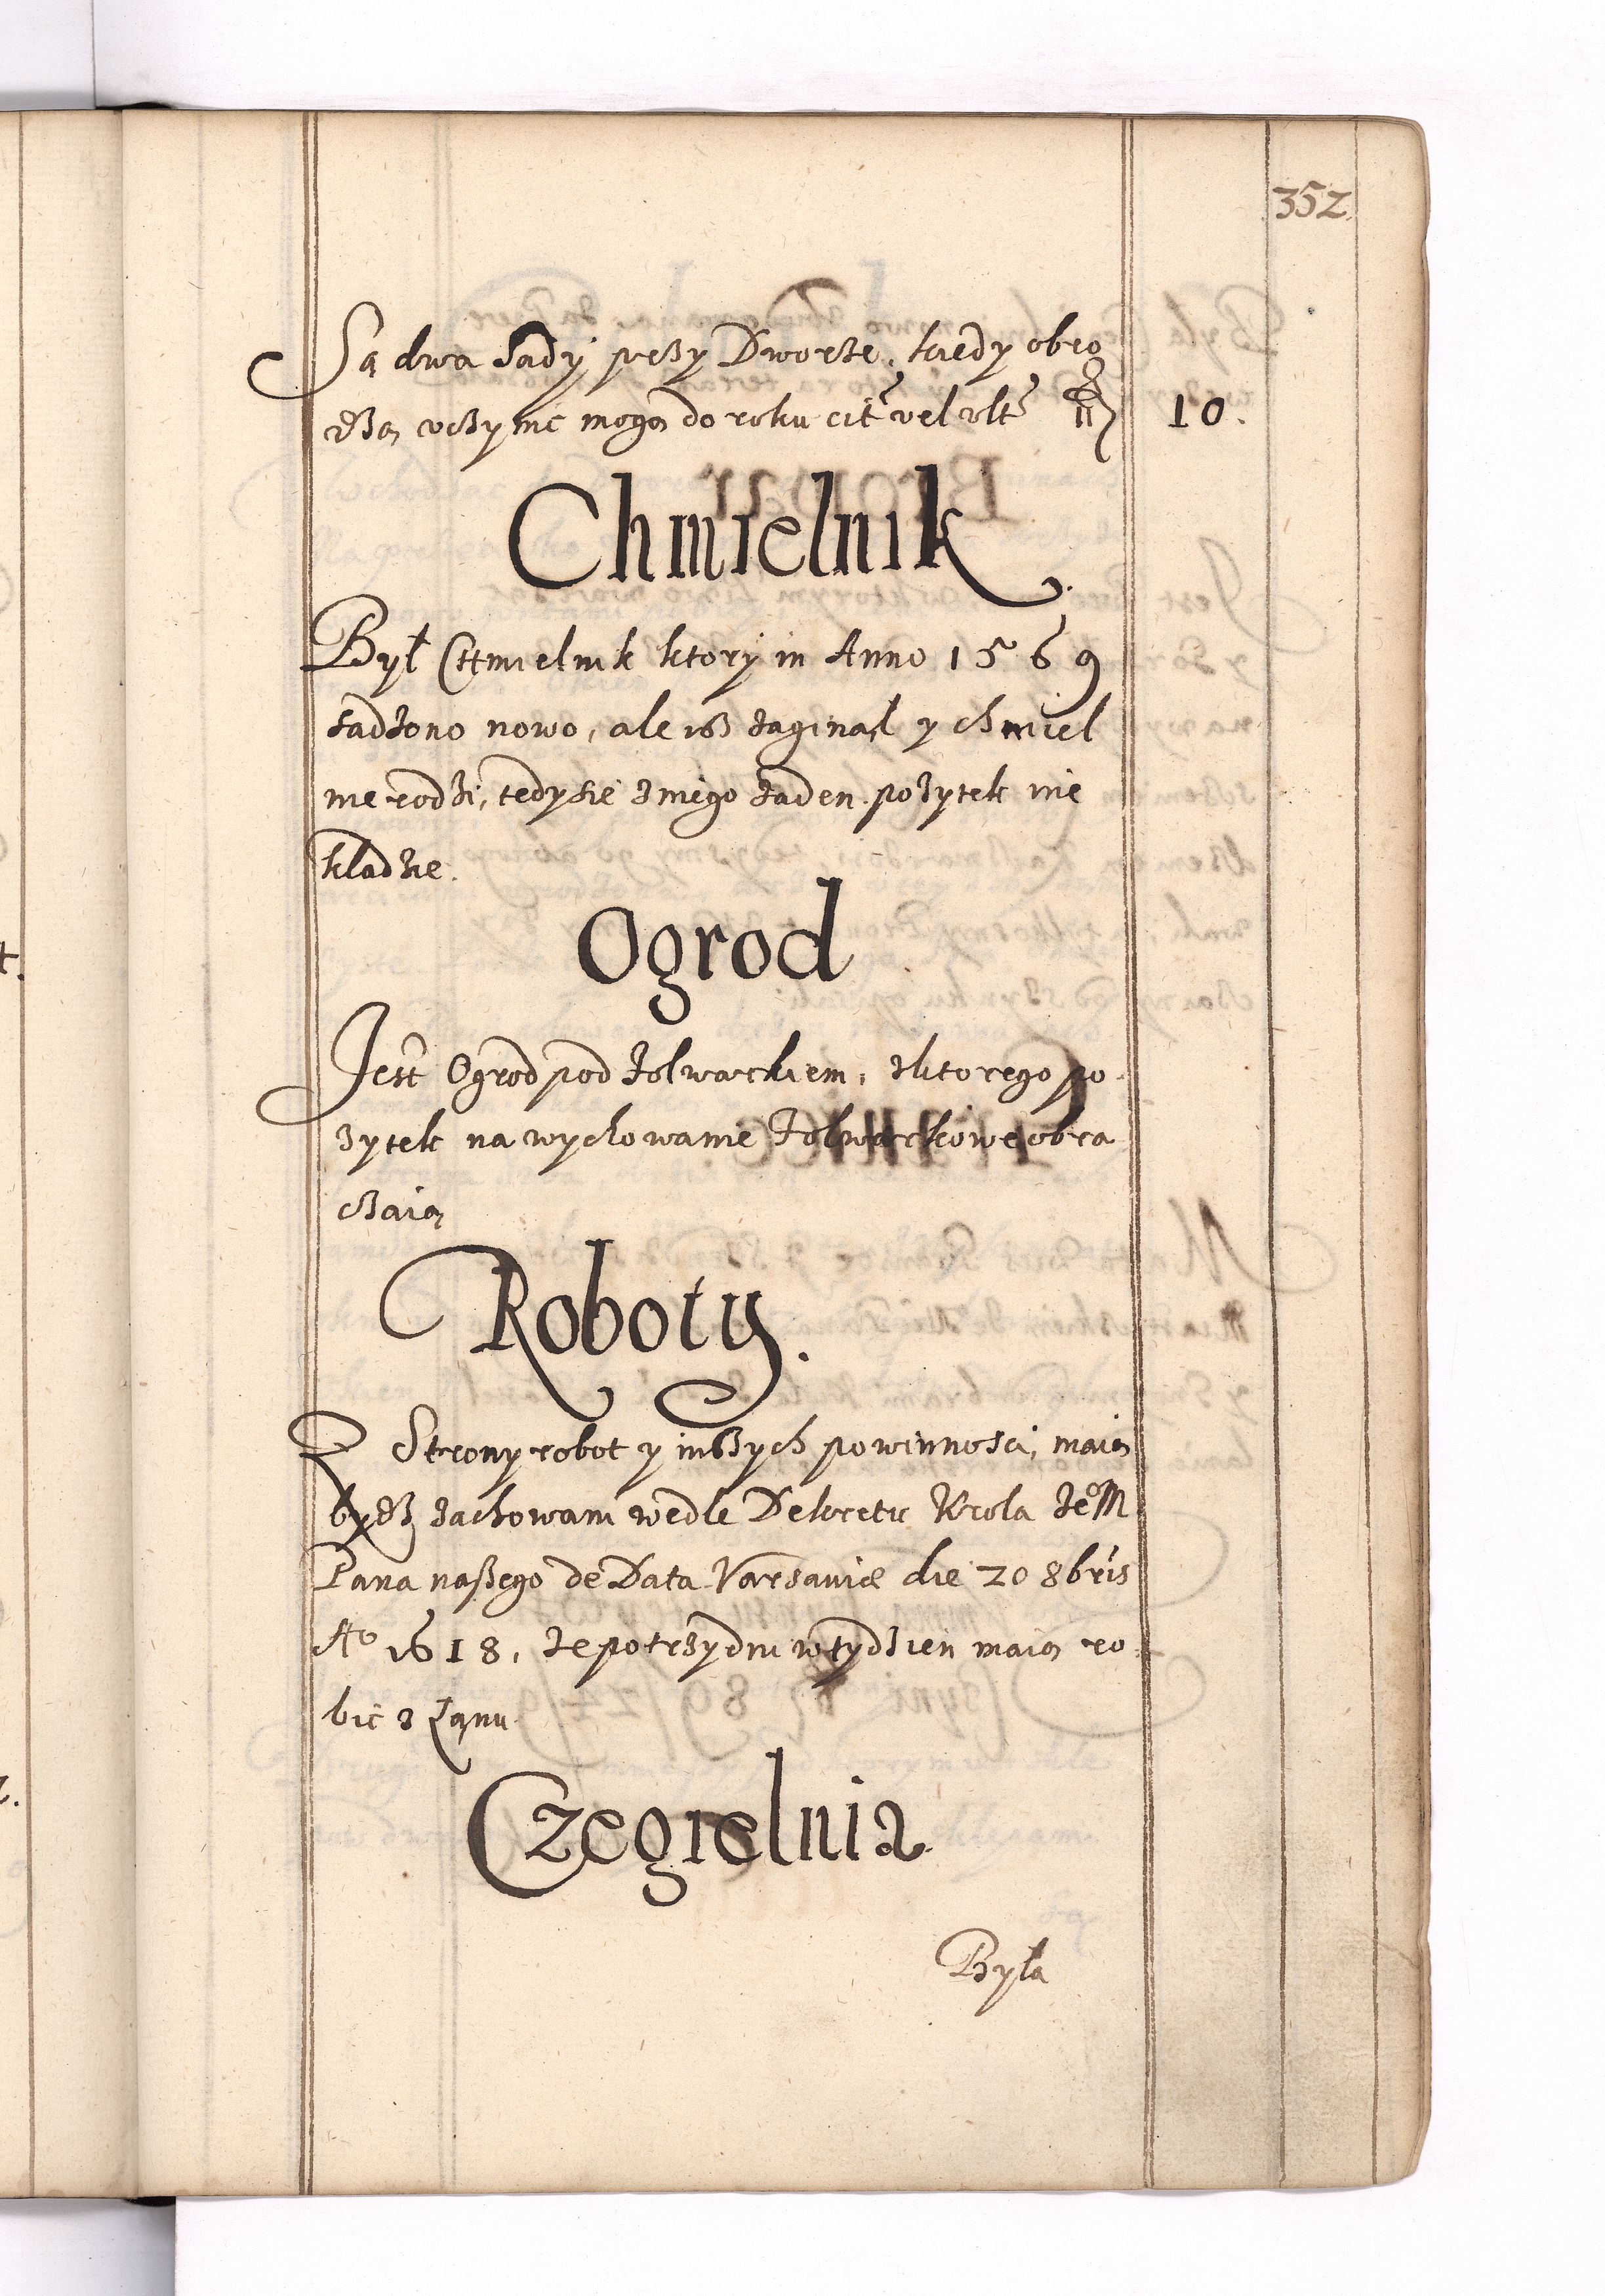 352
Są dwa Sady przy Dworze, kiedy obro
dzą uczynić mogą do roku cit vel ult fl 10.
Chmielnik
Był Chmielnik ktory in Anno 1569
sadzono nowo, ale isz zaginął y chmiel
nie rodzi, tedy sie z niego zaden pozytek nie
kładzie.
Ogrod
Jest Ogrod pod folwarkiem, z ktorego po
zytek na wychowanie folwarkowe obra
czaią
Roboty.
Z Strony robot y inszych powinnosci, maią
bydz zachowani wedle Dekretu Krola JeM
Pana naszego de Data Varsaviæ die 20 8bris
Aº 1618, ze po trzy dni w tydzien maią ro
bic z Łanu
Czegielnia
Była